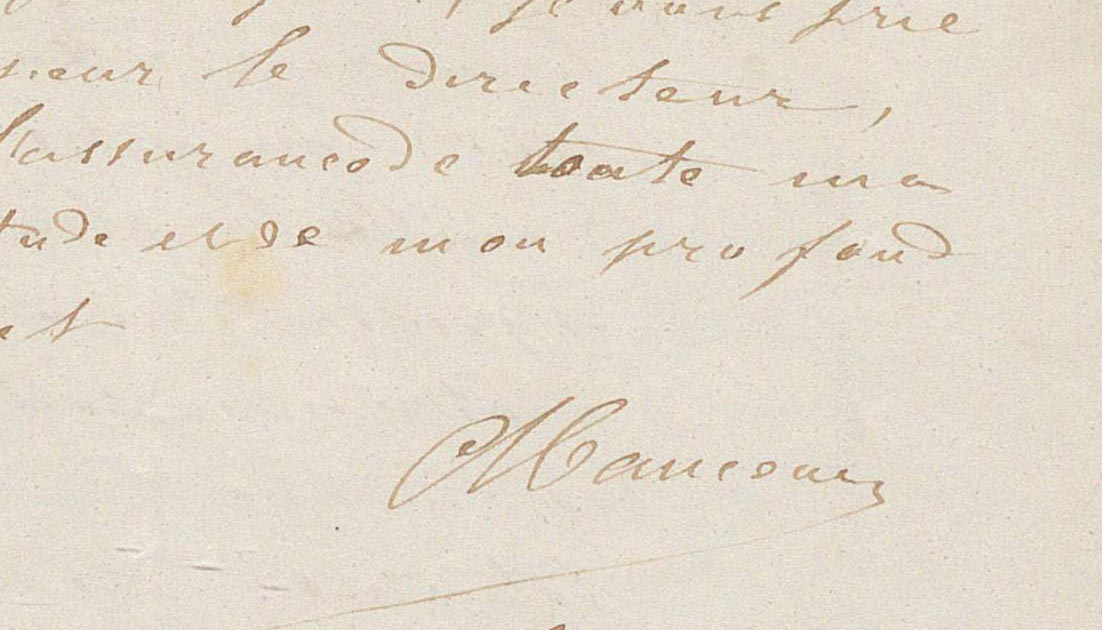 je vous prie
sieur le directeur,
l'assurance de toute ma
tude et de mon profond
ect